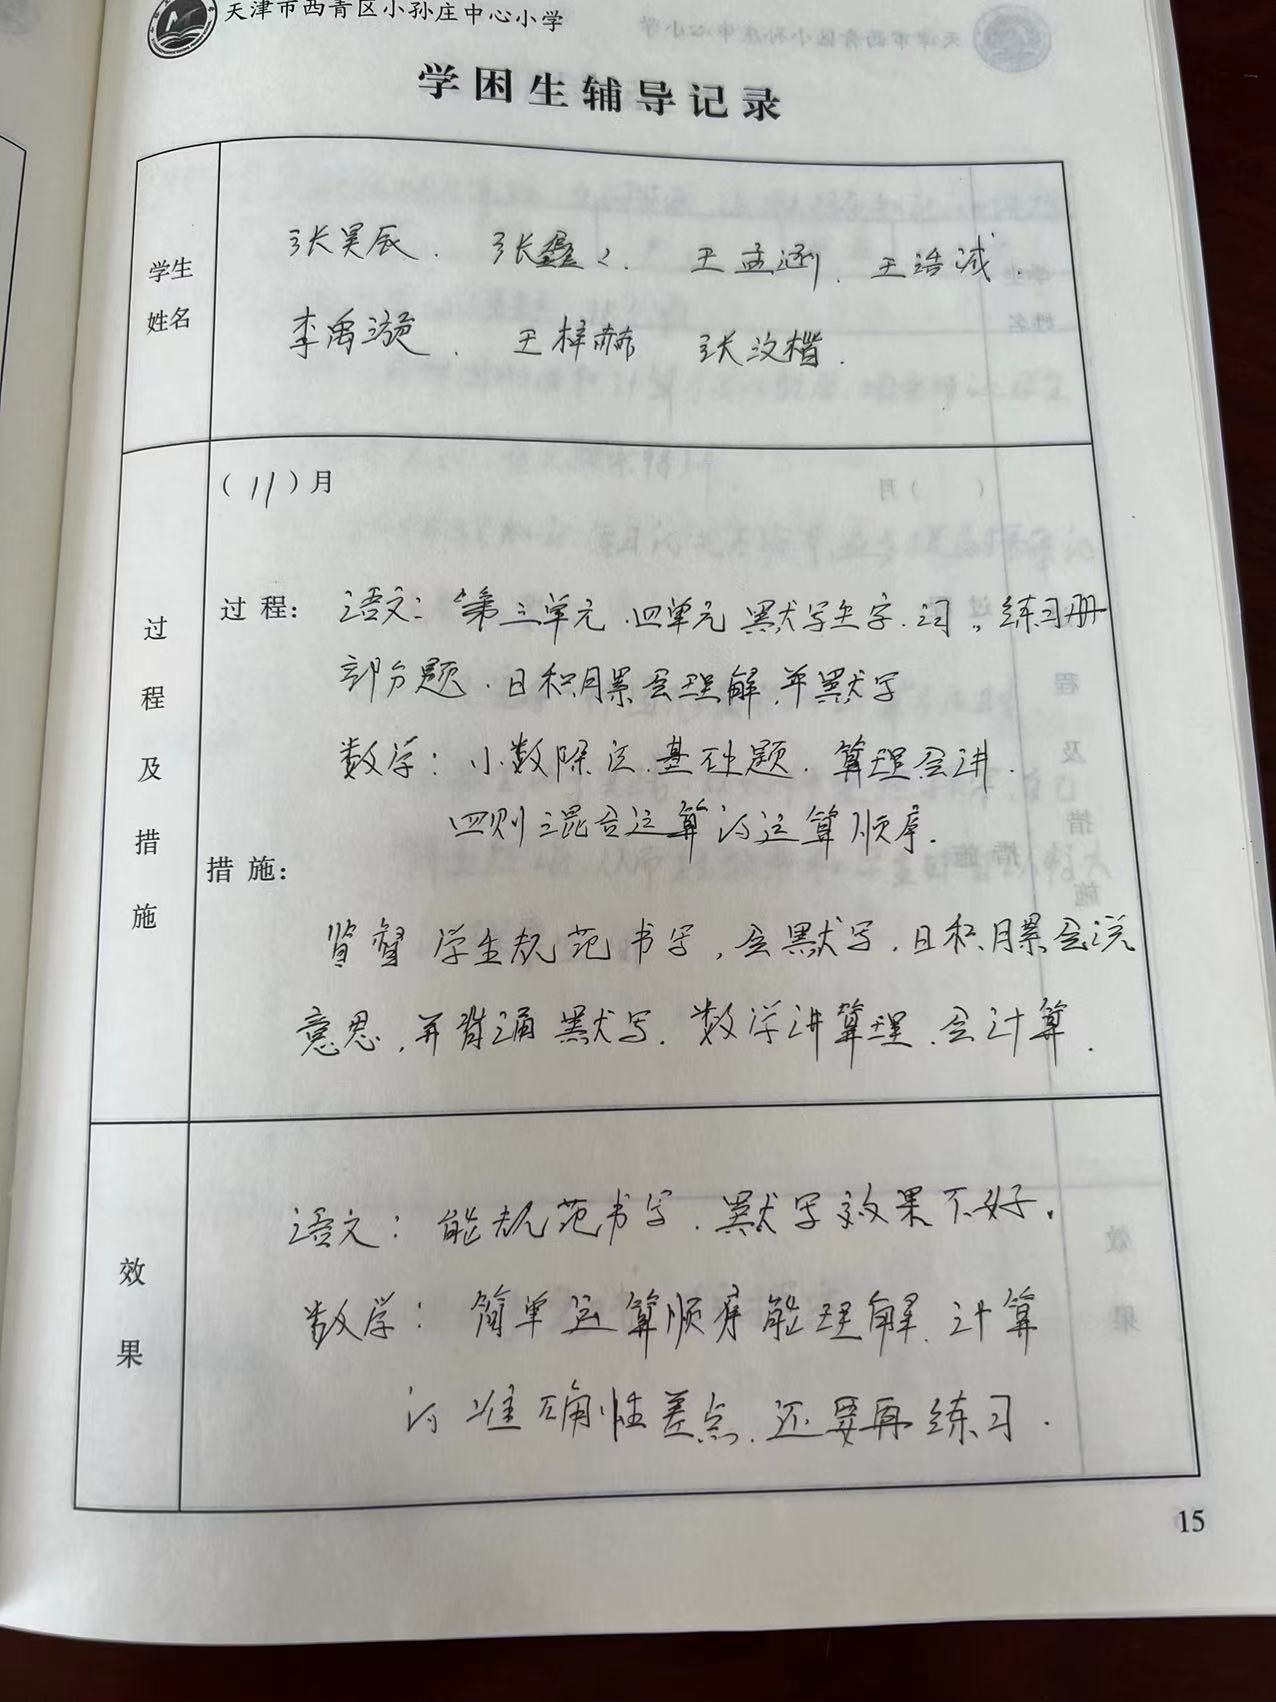 天津市西青区小孙庄中心小学
学困生辅导记录
学生
姓名
张昊辰、张鑫鑫、王孟涵、王浩诚、
李禹漩、王梓赫 张汶楷.
过程及措施
(11)月
过程: 语文:第三单元、四单元默写生字、词。练习册
部分题、日积月累会理解,并默写
数学:小数除法、基础题、算理会讲.
四则混合运算的运算顺序.
措施:
监督学生规范书写,会默写,日积月累会说
意思,并背诵默写.数学讲算理、会计算.
效果
语文:能规范书写、默写效果不好。
数学:简单运算顺序能理解、计算
的准确性差点、还要再练习.
15